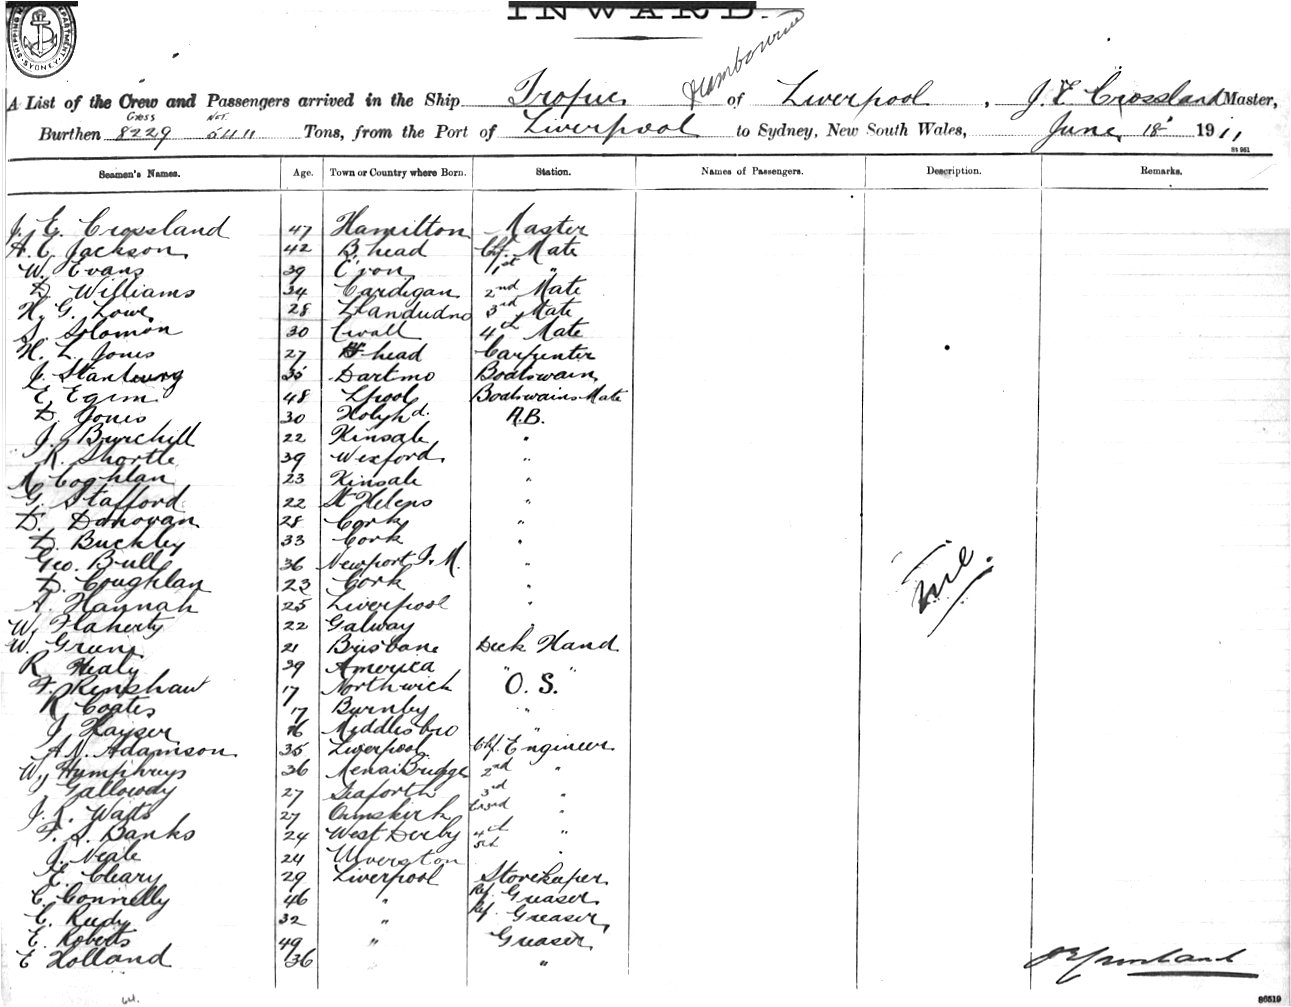 INWARD.
SHIPPING DEPARTMENT SYDNEY
A List of the Crew and Passengers arrived in the Ship Tropic of Liverpool, J. E. Crossland Master,
Gross Net.
Burthen 8229 5411 Tons, from the Port of Liverpool to Sydney, New South Wales, June 18th 1911
Seamen's Names. Age. Town or Country where Born. Station. Names of Passengers. Description. Remarks.
J. E. Crossland 47 Hamilton Master
A. E. Jackson 42 B.head Chf. Mate
W. Evans 39 1st "
D. Williams 34 Cardigan 2nd Mate
H. G. Lowe 28 Llandudno 3rd Mate
S. Solomon 30 4th Mate
H. L. Jones 27 B head Carpenter
J. Stanbury 35 Dartmo Boatswain
E. Egim 48 Lpool Boatswains Mate
D. Jones 30 Holyhd. A.B.
J. Burchill 22 Kinsale "
R. Shortle 39 Wexford "
Coghlan 23 Kinsale "
G. Stafford 22 St Helens "
D. Donovan 28 Cork "
D. Buckley 33 Cork "
Geo. Bull 36 Newport I. M. "
D. Coughlan 23 Cork "
A. Hannah 25 Liverpool "
W. Flaherty 22 Galway "
W. Grum 21 Brisbane Deck Hand
R Healy 39 America " "
F. Renshaw 17 Northwick O. S.
R. Coates 17 Burnby "
J. Kayser 16 Middlesbro "
A. N. Adamson 35 Liverpool Chf. Engineer
W. Humphreys 36 Menai Bridge 2nd "
Gallowdy 27 Seaforth 3rd "
J. R. Watts 27 Ormskirk "
F. S. Banks 24 West Derby 4th "
J. Neale 24 Ulverston 5th "
E. Cleary 29 Liverpool Storekeeper
C. Connelly 46 " Ref. Greaser
C. Rudy 32 " Ref. Greaser
E. Roberts 49 " Greaser
E Holland 36 "
nil.
J E Crossland
86519